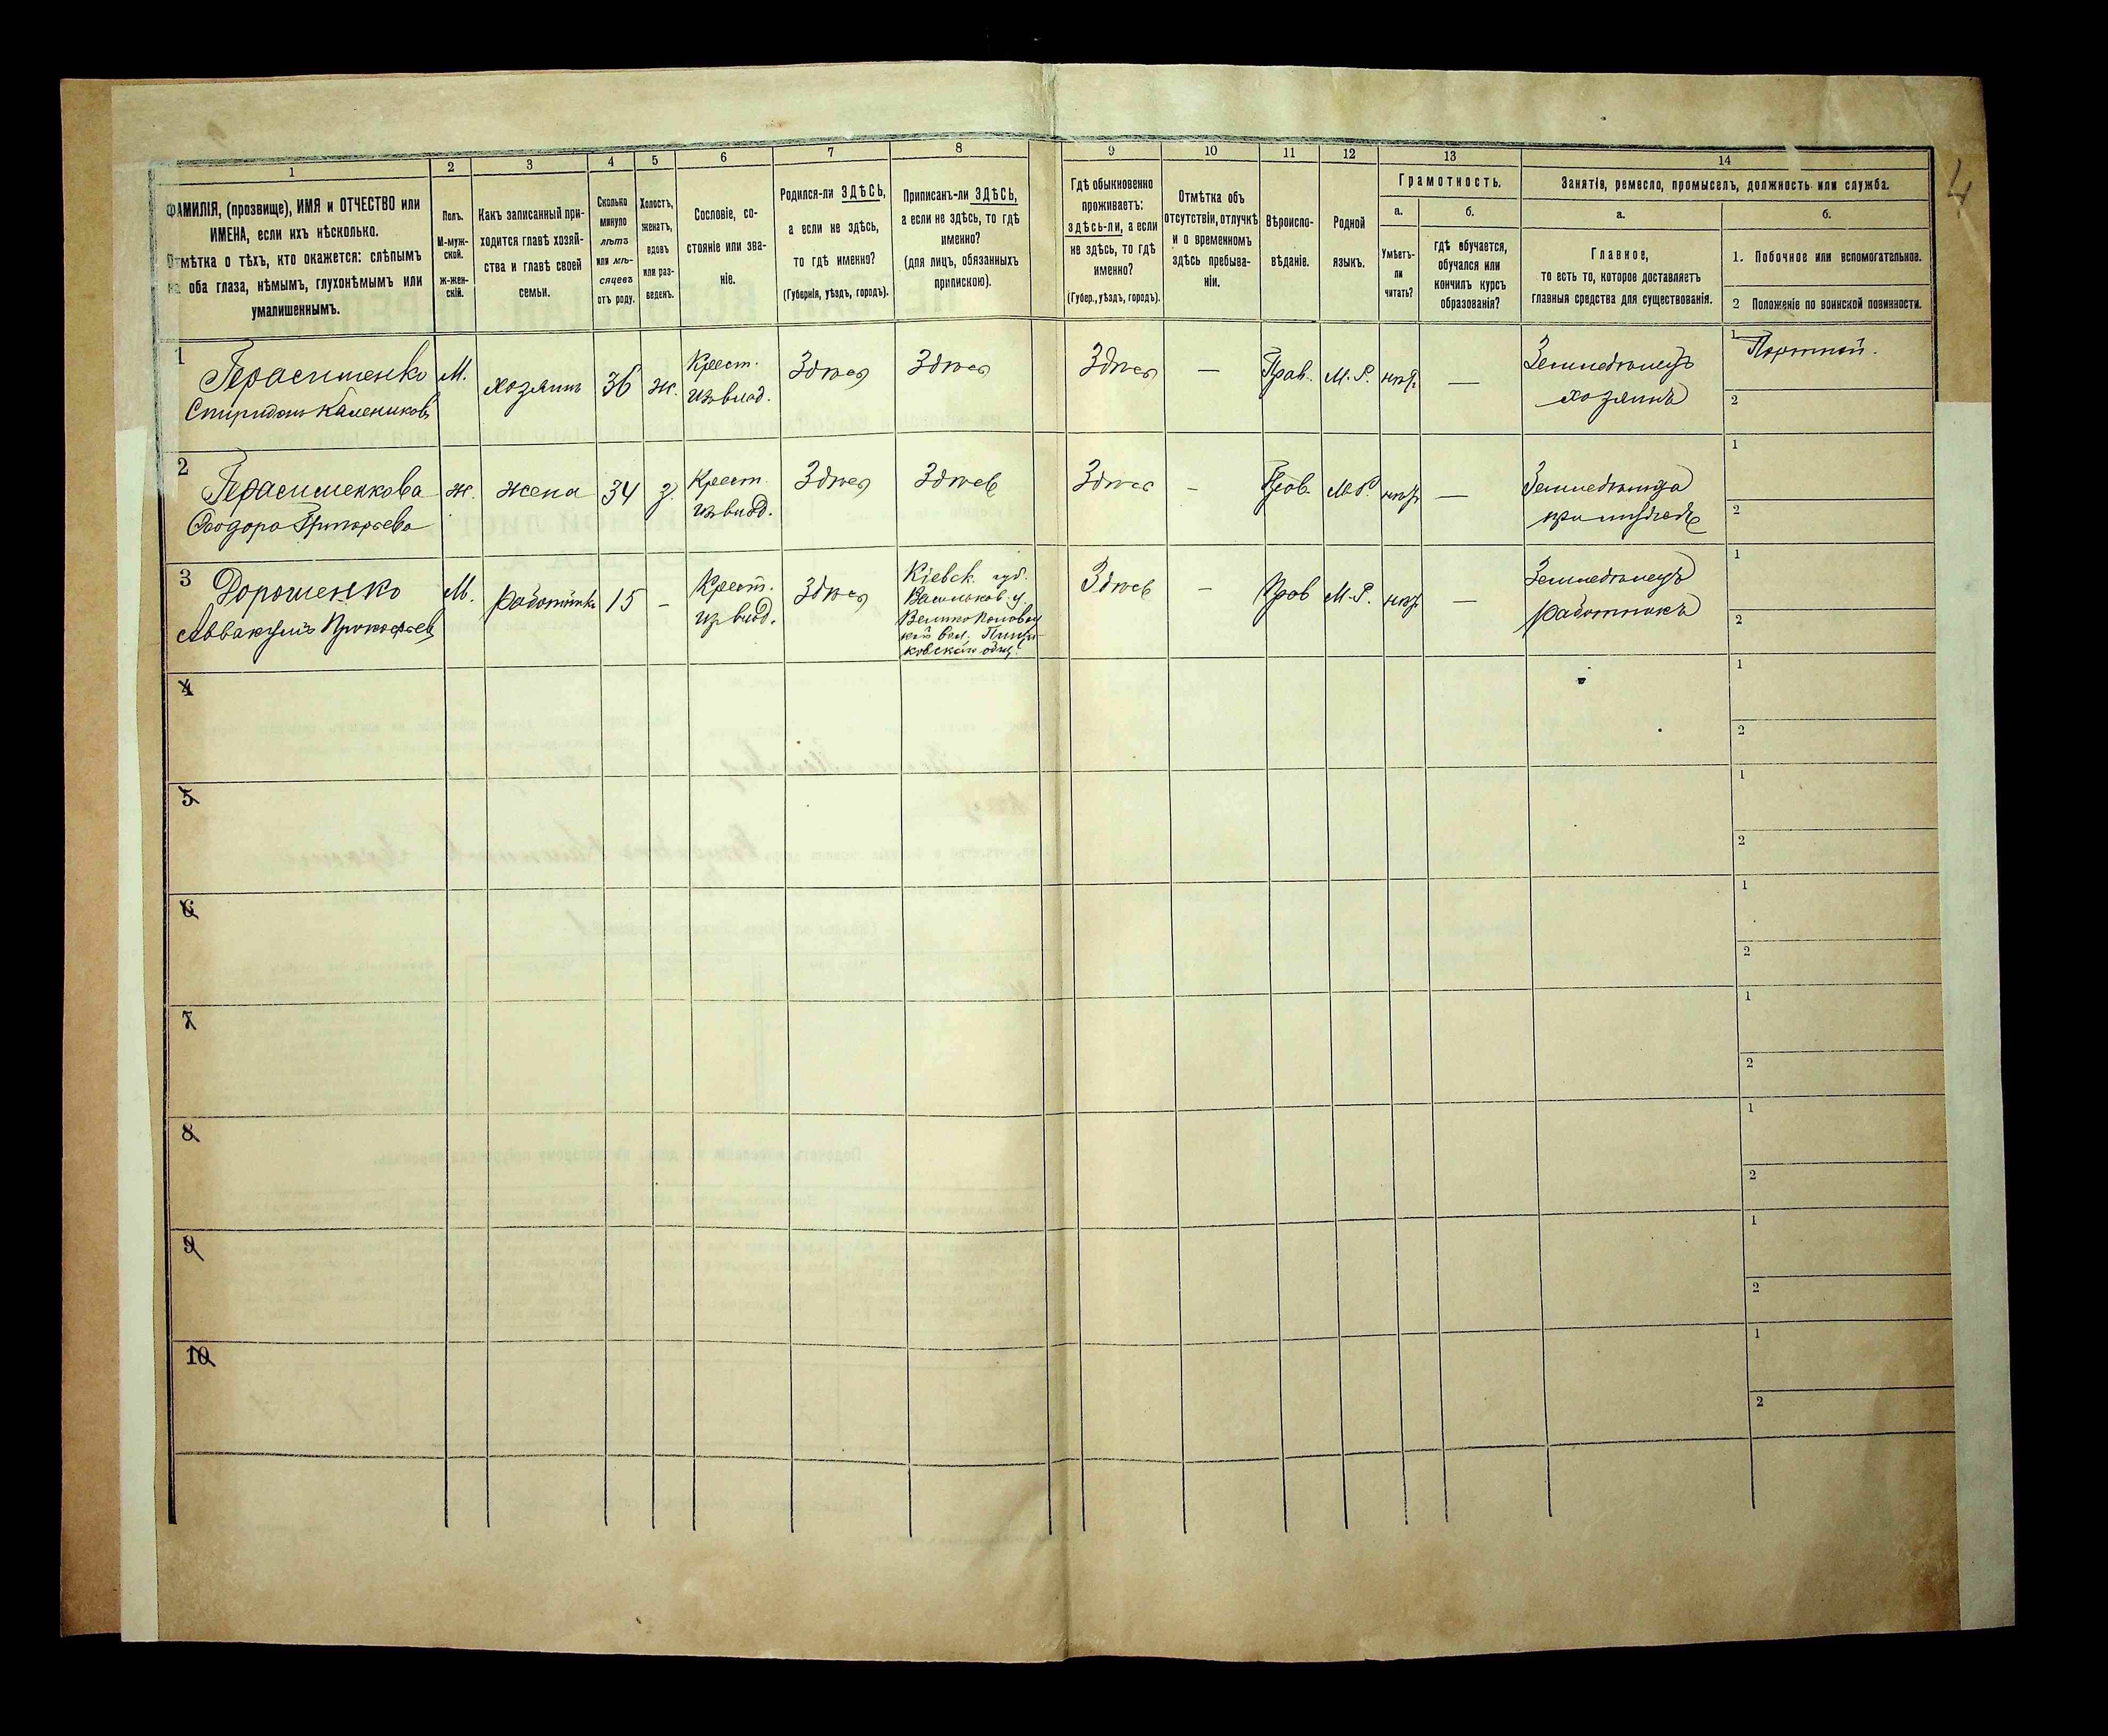 4
1
2
3
4
5
6
7
8
9
10
11
12
13
14
ФАМИЛІЯ, (прозвище), ИМЯ и ОТЧЕСТВО или
ИМЕНА, если ихъ нѣсколько.
Отмѣтка о тѣхъ, кто окажется: слѣпымъ
на оба глаза, нѣмымъ, глухонѣмымъ или
умалишеннымъ.
Полъ.
М-муж-
ской.
Ж-жен-
скій.
Какъ записанный при-
ходится главѣ хозяй-
ства и главѣ своей
семьи.
Сколько
минуло
лѣтъ
или мѣ-
сяцевъ
отъ роду.
Холостъ,
женатъ,
вдовъ
или раз-
веденъ.
Сословіе, со-
стояніе или зва-
ніе.
Родился-ли ЗДѢСЬ,
а если не здѣсь,
то гдѣ именно?
(Губернія, уѣздъ, городъ).
Приписанъ-ли ЗДѢСЬ,
а если не здѣсь, то гдѣ
именно?
(для лицъ, обязанныхъ
припискою).
Гдѣ обыкновенно
проживаетъ:
здѣсь-ли, а если
не здѣсь, то гдѣ
именно?
(Губер., уѣздъ, городъ).
Отмѣтка объ
отсутствіи, отлучкѣ
и о временномъ
здѣсь пребыва-
ніи.
Вѣроиспо-
вѣданіе.
Родной
языкъ.
Грамотность.
а.
Умѣетъ-
ли
читать?
б.
гдѣ обучается,
обучался или
кончилъ курсъ
образованія?
Занятія, ремесло, промыселъ, должность или служба.
а.
Главное,
то есть то, которое доставляетъ
главныя средства для существованія.
б.
1. Побочное или вспомогательное.
2 Положеніе по воинской повинности.
1
Герасименко
Спиридонъ Калениковъ
М.
хозяинъ
36
ж.
Крест.
изъ влад.
Здѣсь
Здѣсь
Здѣсь
—
Прав.
М. Р.
нѣт
—
Земледѣлецъ
хозяинъ
1
Портной.
2
2
Герасименкова
Ѳеодора Григорьева
ж.
жена
34
з.
Крест.
изъ влад.
Здѣсь
Здѣсь
Здѣсь
-
Прав.
М. Р.
нѣт
—
Земледѣлица
при мужѣ
1
2
3
Дорошенко
Аввакумъ Прокофьев
М.
работникъ
15
-
Крест.
из влад.
Здѣсь
Кіевск. губ.
Васильков. у.
Здѣсь
-
Прав
М. Р.
нѣт
—
Земледѣлецъ
работникъ
1
2
4
1
2
5
1
2
6
1
2
7
1
2
8
1
2
9
1
2
10
1
2